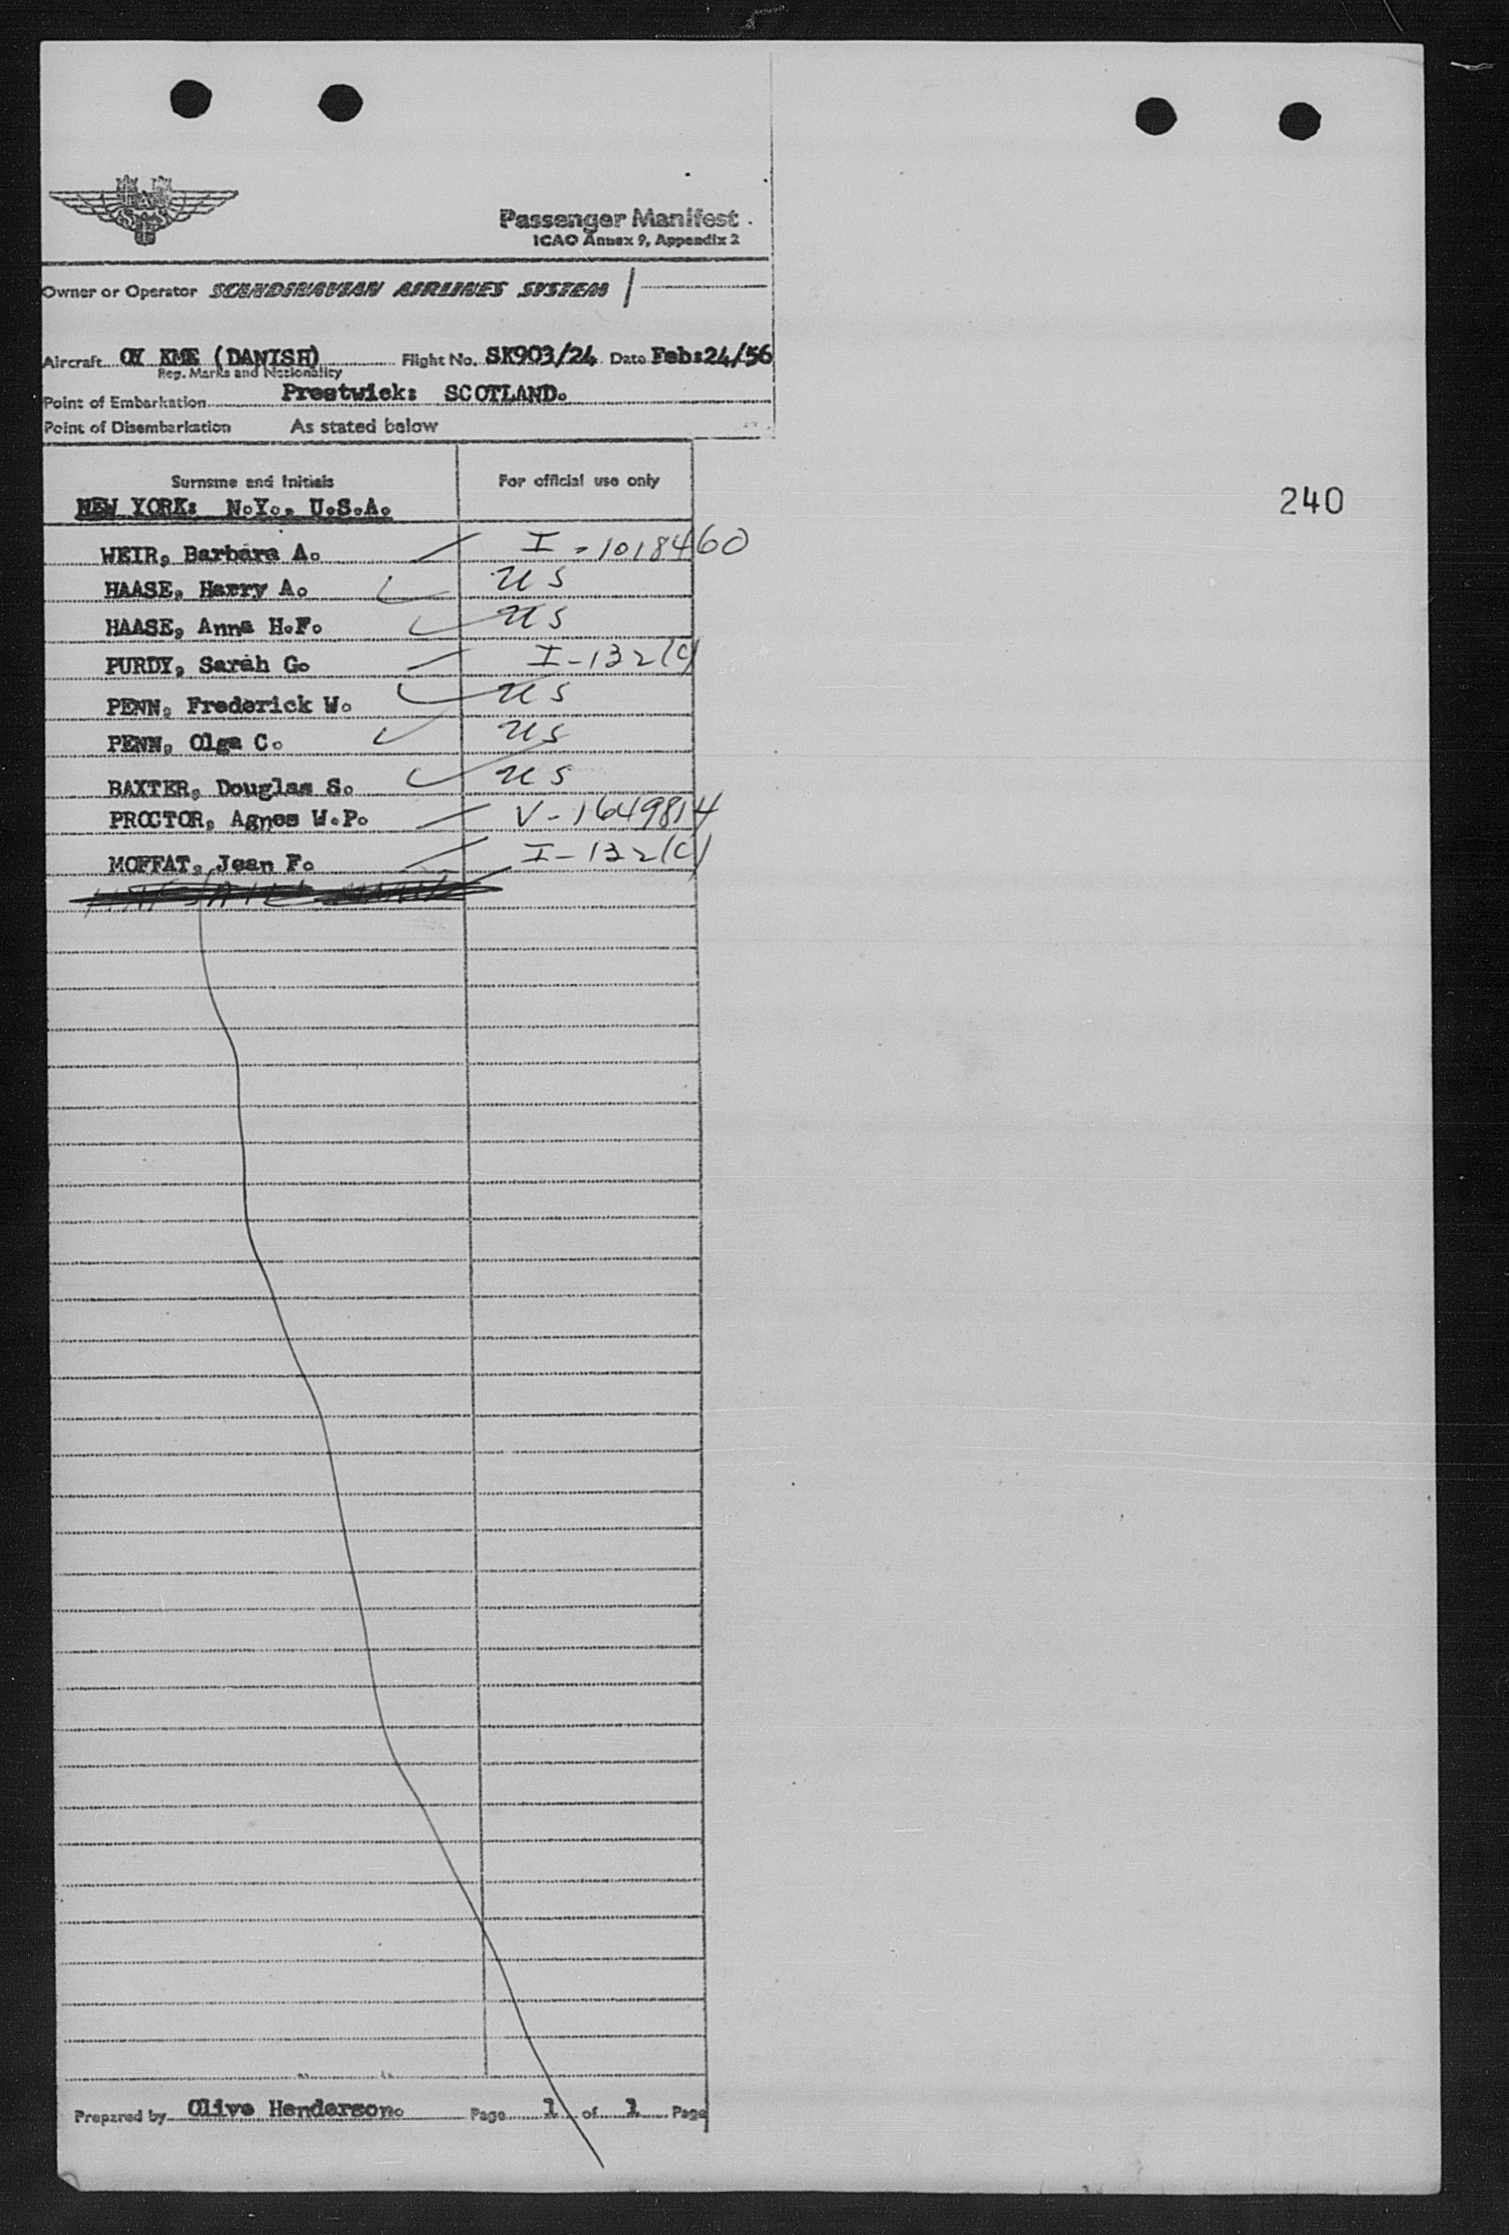 SAS
Passenger Manifest
ICAO Annex 9, Appendix 2
Owner or Operator SCANDINAVIAN AIRLINES SYSTEM
Aircraft OY KME (DANISH) Flight No. SK903/24 Date Feb:24/56
Reg. Marks and Nationality
Point of Embarkation Prestwick: SCOTLAND.
Point of Disembarkation As stated below
Surname and Initials For official use only
NEW YORK: N.Y.. U.S.A.
240
WEIR, Barbara A. I-1018460
HAASE, Harry A. US
HAASE, Anna H.F. US
PURDY, Sarah G. I-132(c)
PENN, Frederick W. US
PENN, Olga C. US
BAXTER, Douglas S. US
PROCTOR, Agnes W.P. V-1649814
MOFFAT, Jean F. I-132(c)
Prepared by Olive Henderson. Page 1 of 1 Page